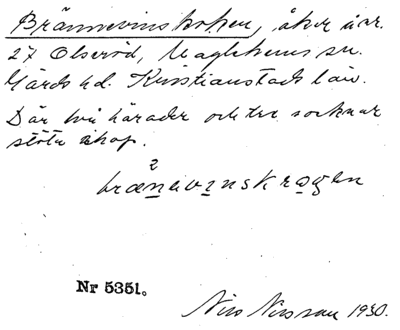 Brännevinskroken, åker å nr.
27 Olseröd, Maglehems sn.
Gärds hd. Kristianstads län.
Där två härader och tre socknar
stöta ihop.
2
brænevinskrogen
Nr 5351.
Nils Nilsson 1930.